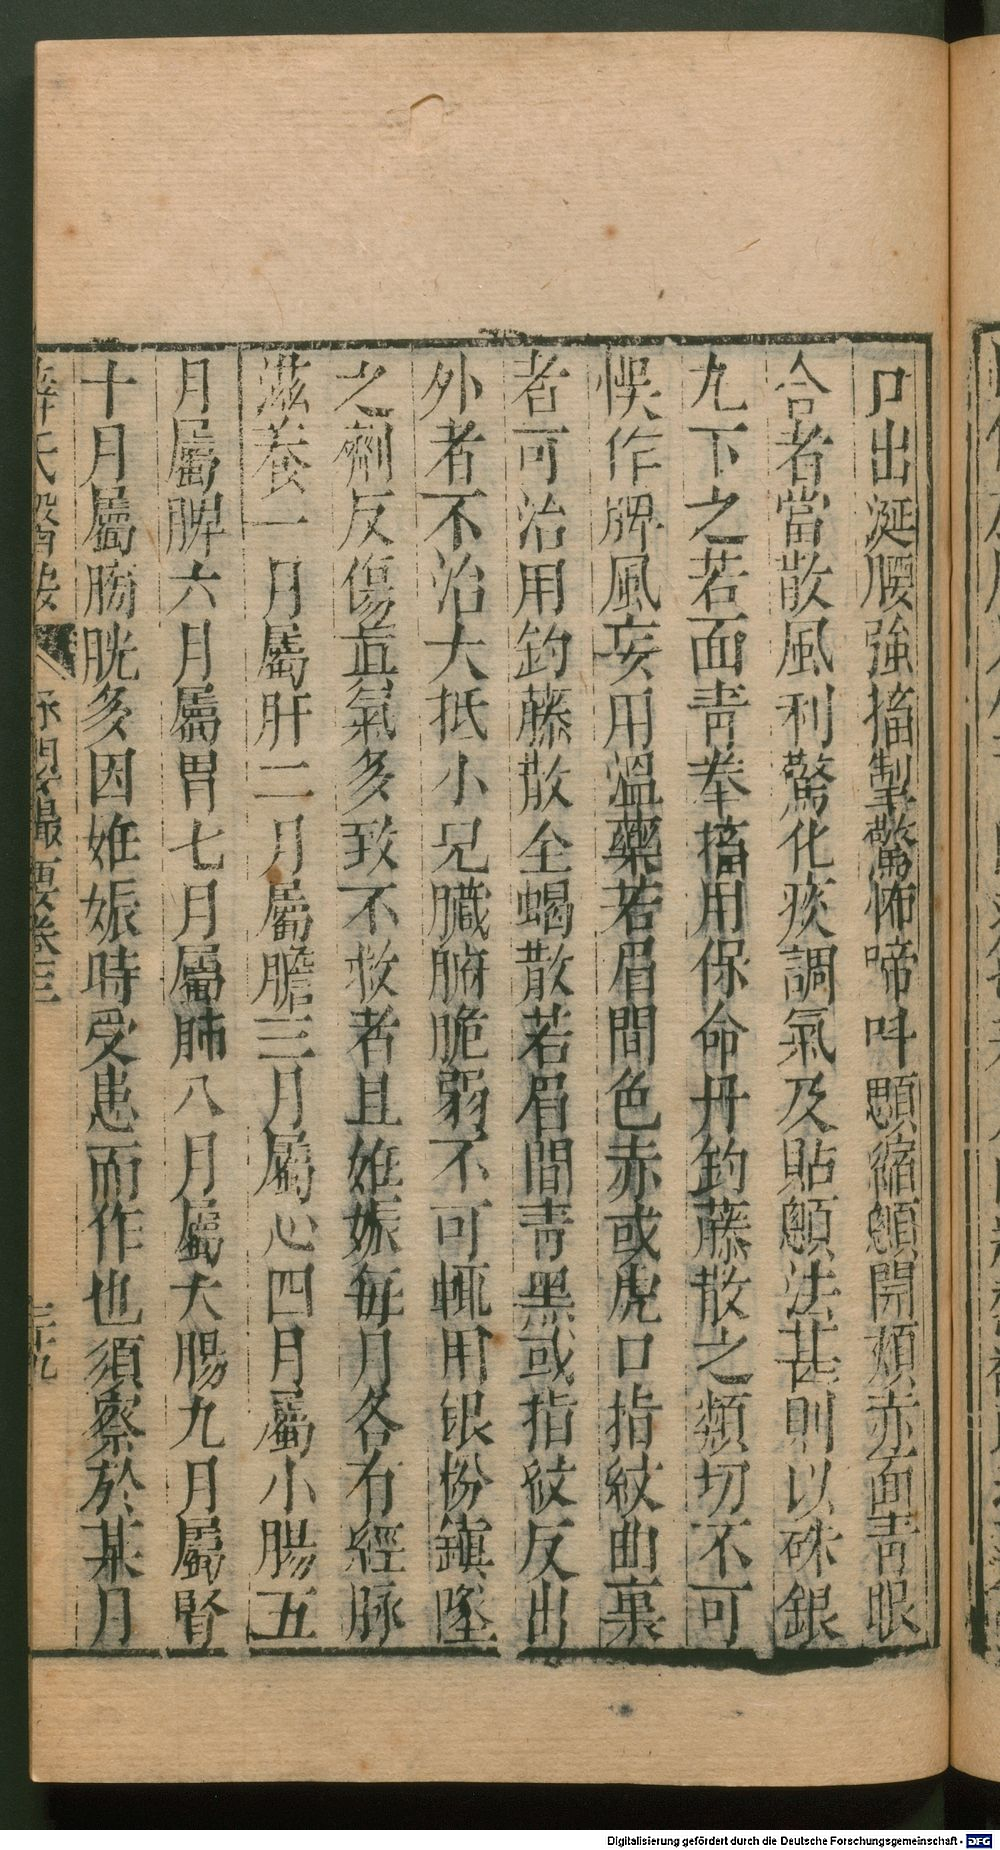 口出涎腰強搐掣驚怖啼叫顋縮顖開頰赤面青眼
合者當散風利驚化痰調氣及貼顖法甚則以硃銀
丸下之若面青拳搐用保命丹釣藤散之類切不可
悞作脾風妄用溫藥若眉間色赤或虎口指紋曲裏
者可治用釣藤散全蝎散若眉間青黑或指紋反出
外者不治大抵小兒臟腑脆弱不可輒用銀粉鎮墜
之劑反傷眞氣多致不救者且姙娠每月各有經脉
滋養一月屬肝二月屬膽三月屬心四月屬小腸五
月屬脾六月屬胃七月屬肺八月屬大腸九月屬腎
十月屬膀胱多因姙娠時受患而作也須察於某月
薛氏醫按 保嬰撮要卷三 三十九
Digitalisierung gefördert durch die Deutsche Forschungsgemeinschaft - DFG